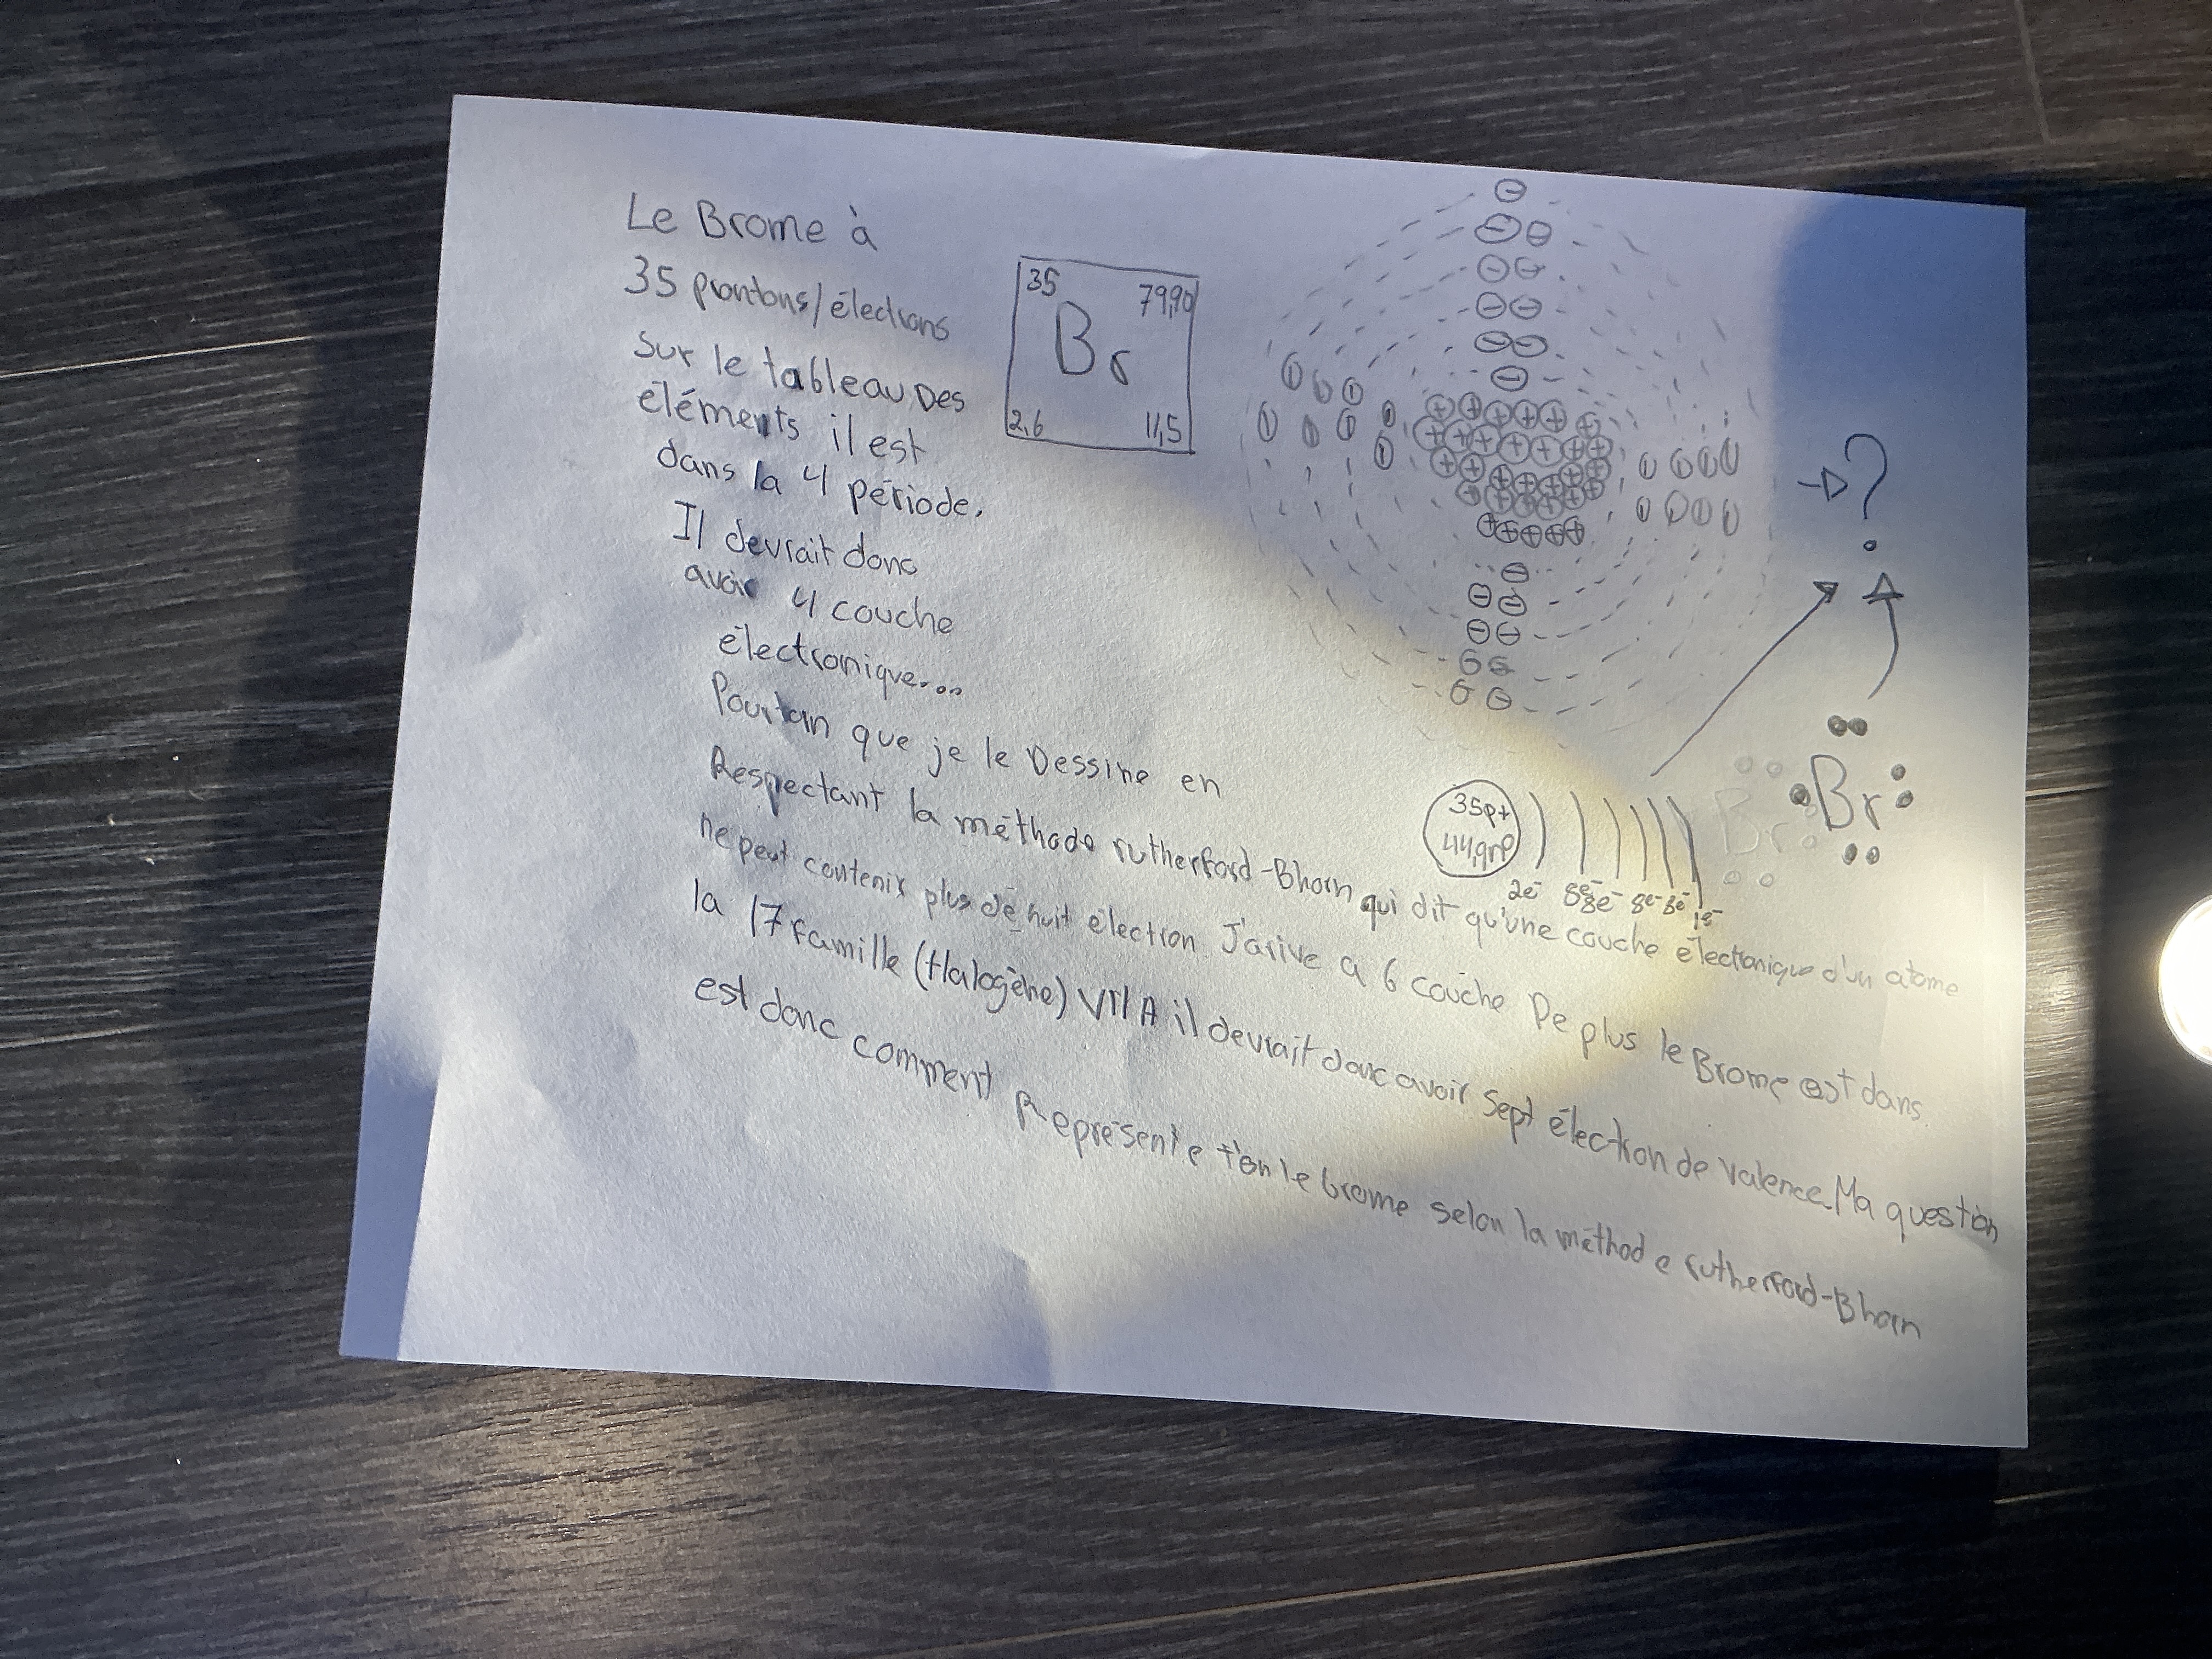 Le Brome à
35 prontons/élections
Sur le tableau Des
éléments il est
dans la 4 période.
Il devrait donc
avoir 4 couche
électronique...
Pourtan que je le Dessine en
Respectant la méthode rutherford-Bhorn qui dit qu'une couche électronique d'un atome
ne peut contenir plus de huit électron. J'arive a 6 couche De plus le Brome est dans
la 17 famille (Halogène) VII A il devrait donc avoir Sept électron de valence. Ma question
est donc comment Représente t'on le brome selon la méthode rutherford-Bhorn
35
79,90
Br
2,6
11,5
?
35p+
44,9n°
2e- 8e- 8e- 8e- 8e- 1e-
Br
Br